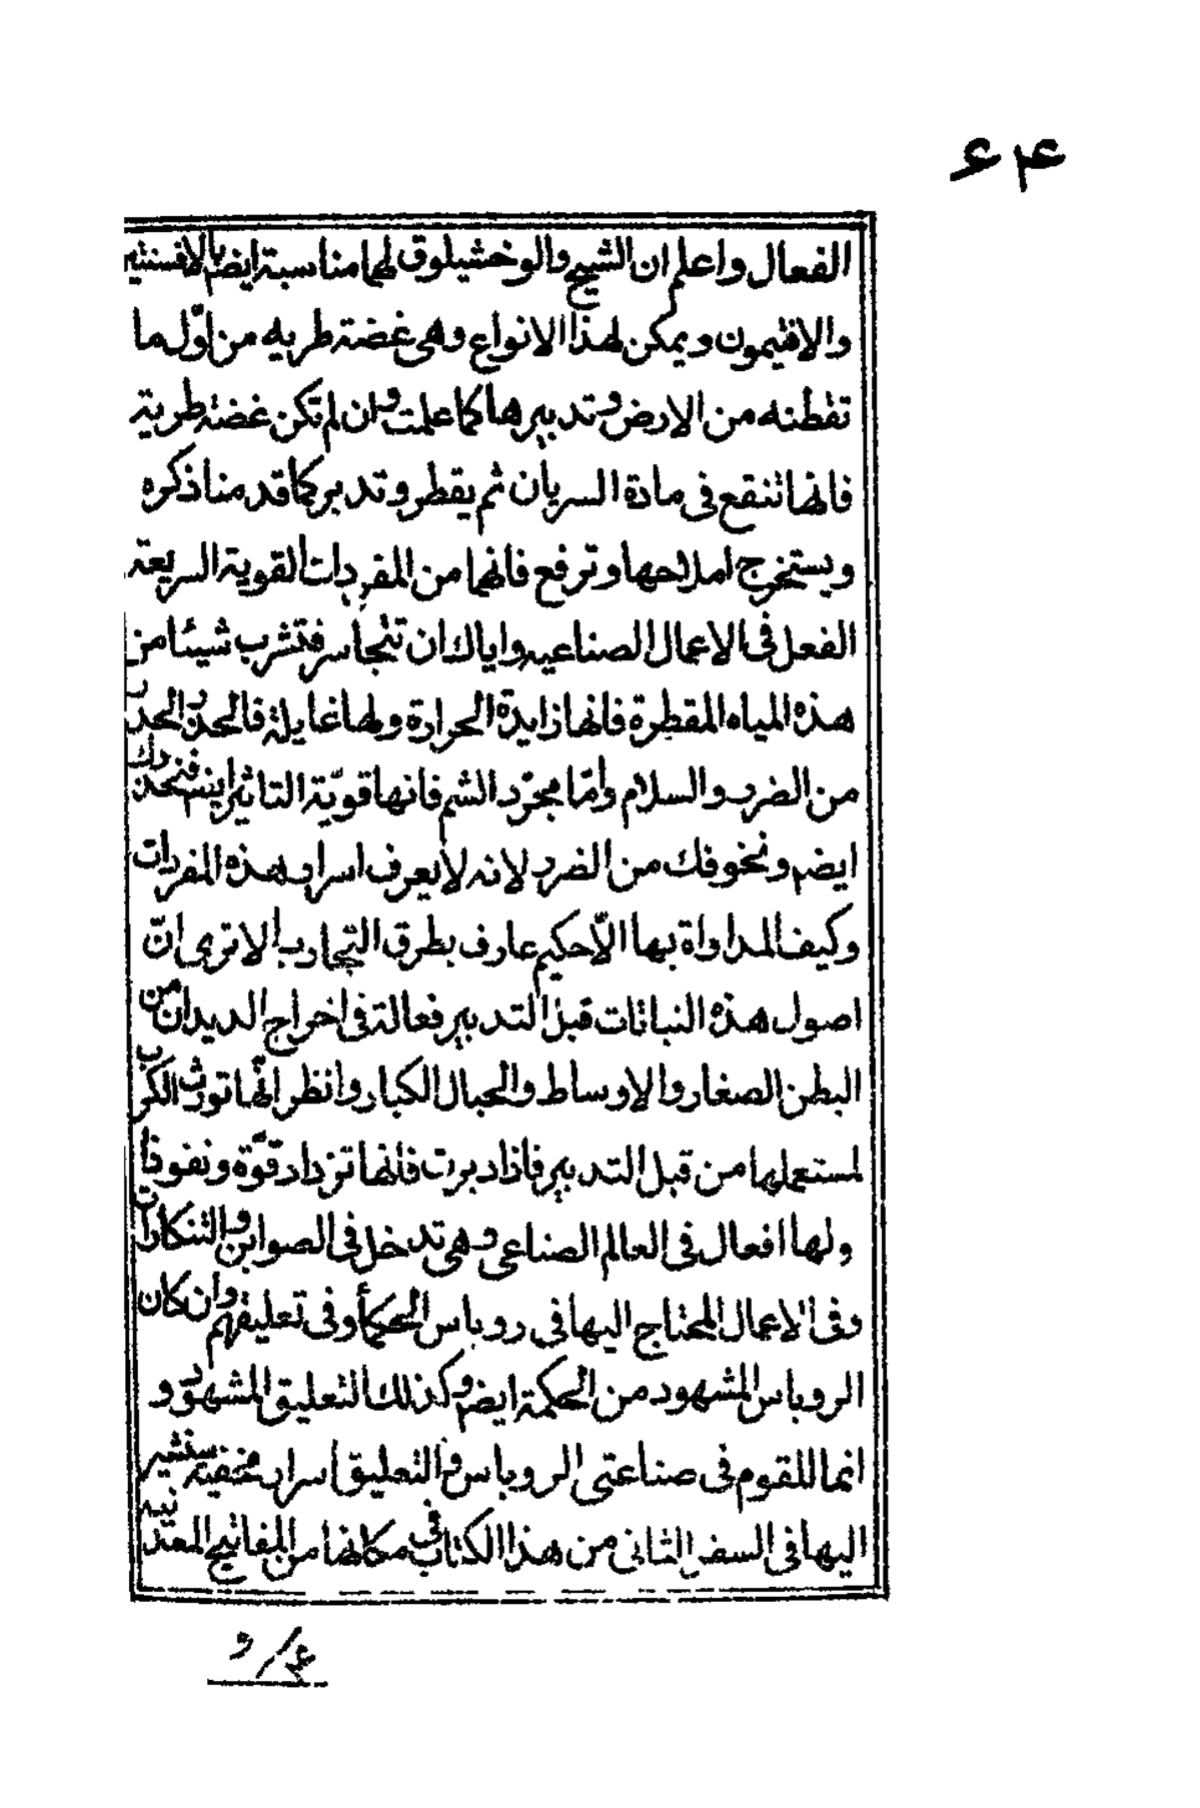 ۶۴
الفعال واعلم ان الشيح والوخشيلوق لهما مناسبة ايضم بالافسنتين
والافتيمون ويمكن لهذا الانواع وهى غضة طريه من اوّل ما
تقطنه من الارض وتدبيرها كما علمت وان لم تكن غضة طرية
فانها تنقع فى مادة السريان ثم يقطر وتدبر كما قدمنا ذكره
ويستخرج املاحها وترفع فانها من المفردات القوية السريعة
الفعل فى الاعمال الصناعيه واياك ان تتجاسر فتشرب شيئا من
هذه المياه المقطرة فانها زايدة الحرارة ولها غايلة فالحذر الحذر
من الضرر والسلام وأمّا مجرّد الشم فانها قويّة التاثير ايضم فنحذرك
ايضم ونخوفك من الضرر لانه لا يعرف اسرار هذه المفردات
وكيف المداواة بها الّا حكيم عارف بطرق التجارب الا ترى انّ
اصول هذه النباتات قبل التدبير فعالة فى اخراج الديدان من
البطن الصغار والاوساط والحبال الكبار وانظر انّها تورث الكرب
لمستعملها من قبل التدبير فاذا دبرت فانها تزداد قوّة ونفوذا
ولها افعال فى العالم الصناعى وهى تدخل فى الصوابن والتنكارات
وفى الاعمال المحتاج اليها فى روباس الحكمأ وفى تعليقهم وان كان
الروباس المشهود من الحكمة ايضم وكذلك التعليق المشهور و
انما للقوم فى صناعتى الروباس والتعليق اسرار مخفية سنشير
اليها فى السفر الثانى من هذا الكتاب فى مكانها من المفاتيح المعدّنيه